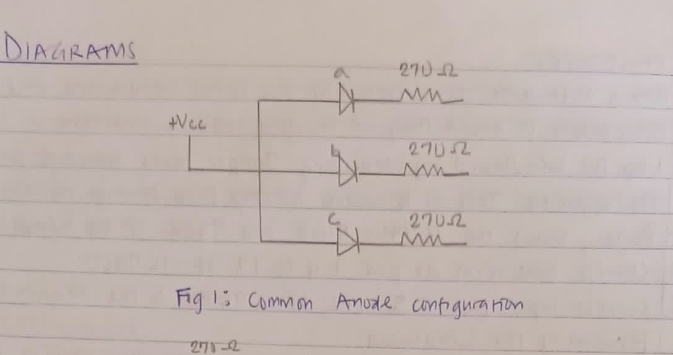 DIAGRAMS
a 270Ω
+Vcc
b 270Ω
c 270Ω
Fig 1: Common Anode configuration
270Ω